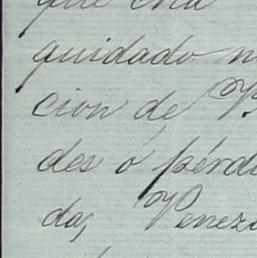 que
quidado
cion de
des ó pérdi
das, Venezu